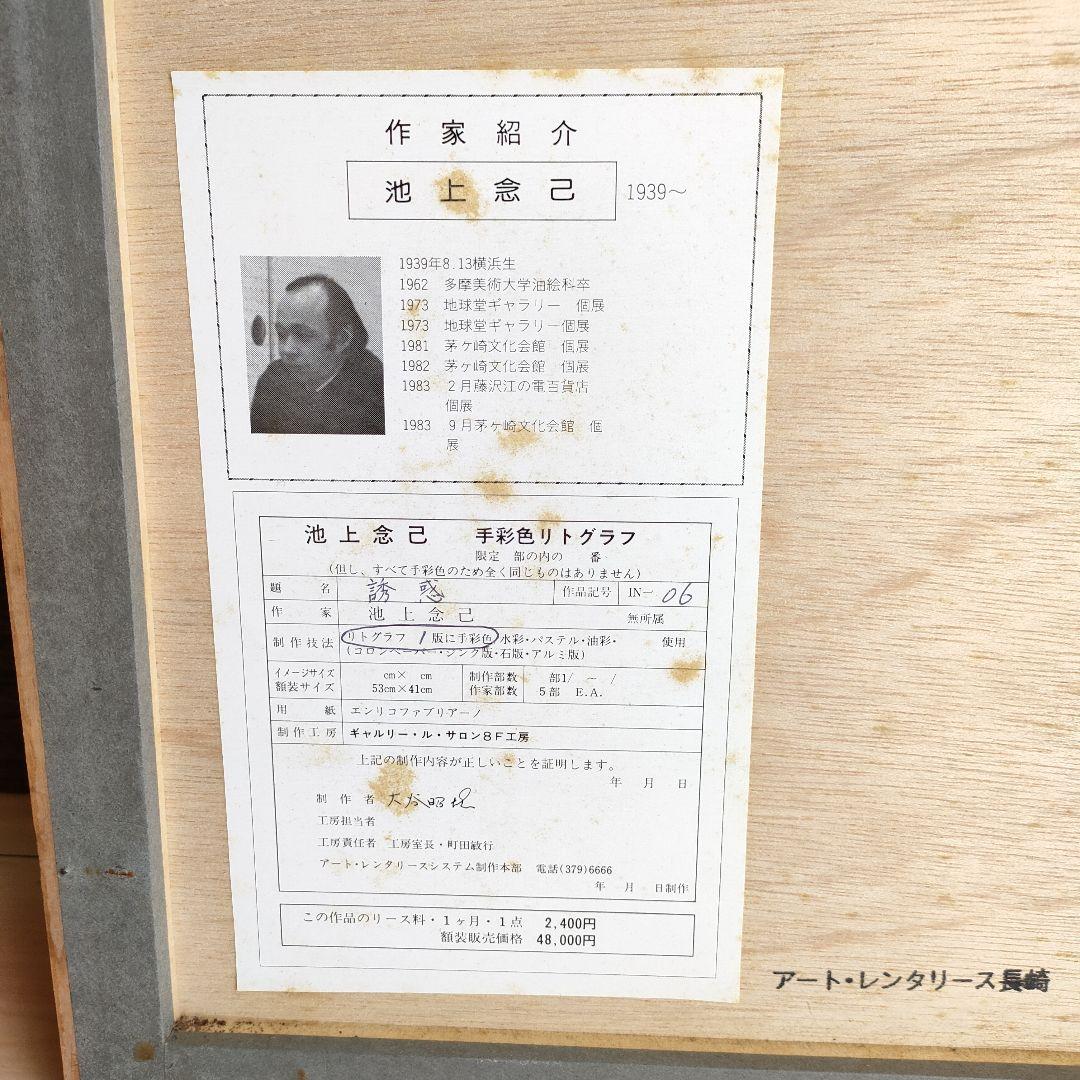 作家紹介
池上念己 1939～
1939年8.13横浜生
1962 多摩美術大学油絵科卒
1973 地球堂ギャラリー 個展
1973 地球堂ギャラリー個展
1981 茅ケ崎文化会館 個展
1982 茅ケ崎文化会館 個展
1983 2月藤沢江の電百貨店
個展
1983 9月茅ケ崎文化会館 個
展
池上念己 手彩色リトグラフ
限定 部の内の 番
(但し、すべて手彩色のため全く同じものはありません)
題名 誘惑 作品記号 IN-06
作家 池上念己 無所属
制作技法 リトグラフ 1版に手彩色 水彩・パステル・油彩・ 使用
(コロンペーパー・ジンク版・石版・アルミ版)
イメージサイズ cm× cm 制作部数 部1/ - /
額装サイズ 53cm×41cm 作家部数 5部 E.A.
用紙 エンリコファブリアーノ
制作工房 ギャルリー・ル・サロン8F工房
上記の制作内容が正しいことを証明します。
年 月 日
制作者
工房担当者
工房責任者 工房室長・町田敏行
アート・レンタリースシステム制作本部 電話(379)6666
年 月 日制作
この作品のリース料・1ヶ月・1点 2,400円
額装販売価格 48,000円
アート・レンタリース長崎